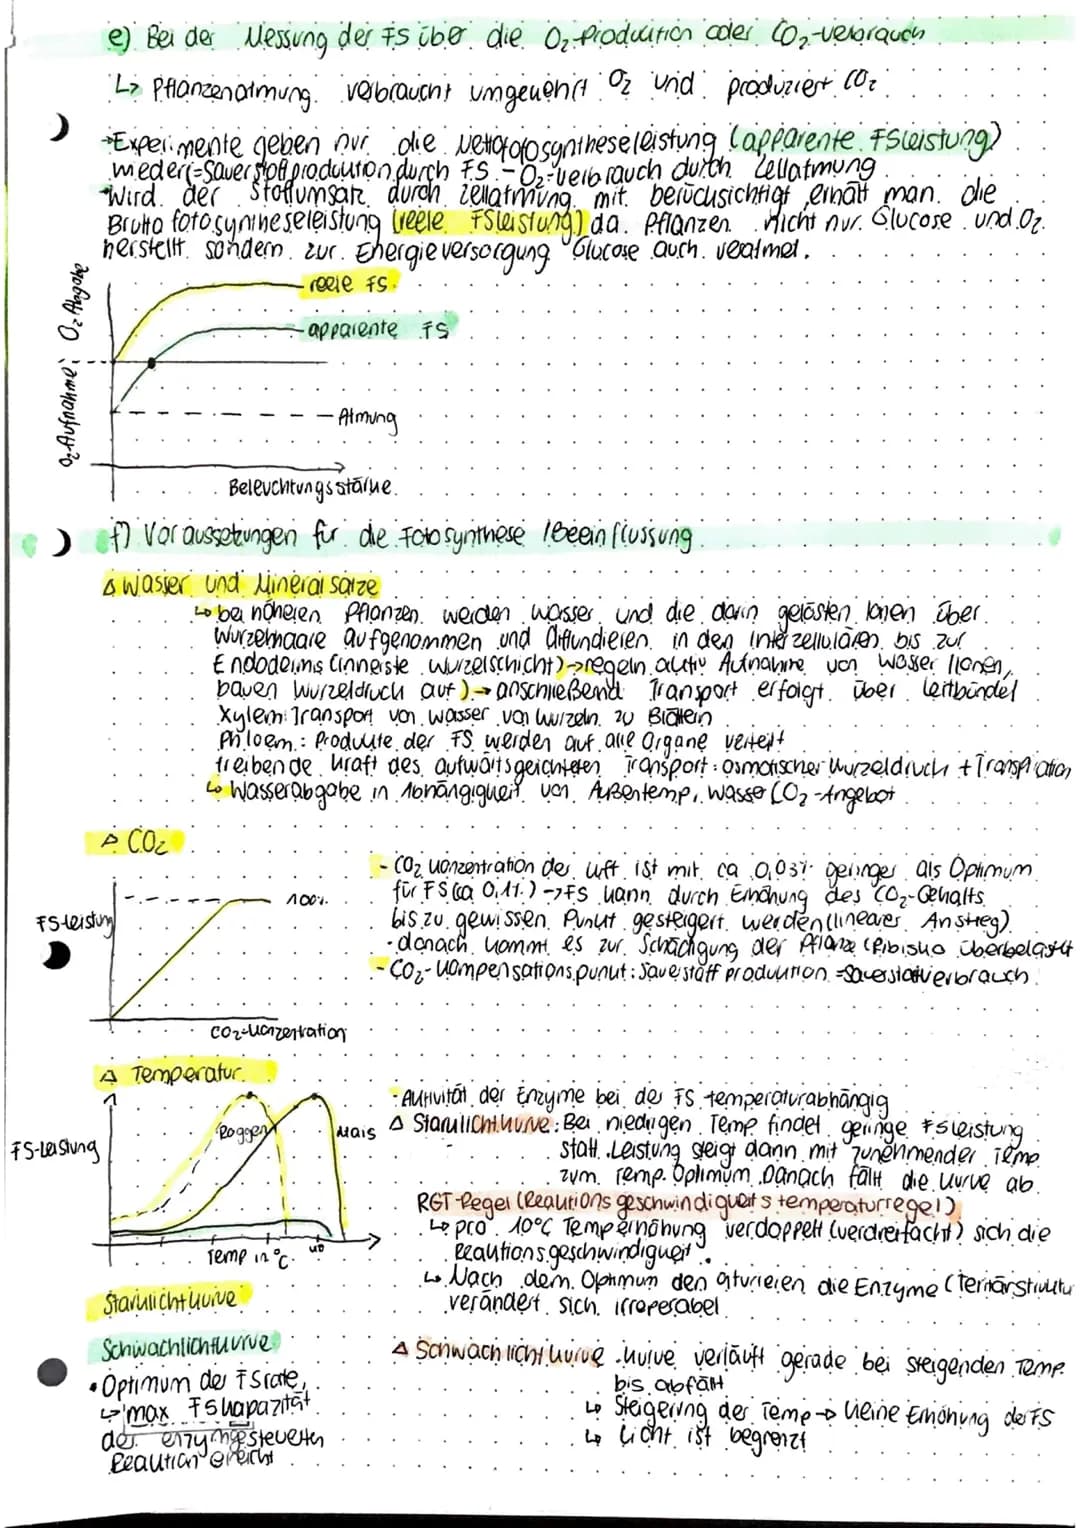 e) Bei der Messung der FS über die O₂-Produktion oder CO₂-Verbrauch
↳ Pflanzenatmung verbraucht umgekehrt O₂ und produziert CO₂
→Experimente geben nur die Nettofotosyntheseleistung (apparente FSleistung)
wieder(=Sauerstoffproduktion durch FS - O₂-Verbrauch durch Zellatmung
→Wird der Stoffumsatz durch Zellatmung mit berücksichtigt erhält man die
Bruttofotosyntheseleistung (reele FSleistung) da Pflanzen nicht nur Glucose und O₂
herstellt sondern zur Energieversorgung Glucose auch veratmet.
O₂-Aufnahme | O₂ Abgabe
reele FS
apparente FS
Atmung
Beleuchtungsstärke
f) Voraussetzungen für die Fotosynthese /Beeinflussung
Δ Wasser und Mineralsalze
↳ bei höheren Pflanzen werden Wasser und die darin gelösten Ionen über
Wurzelhaare aufgenommen und diffundieren in den Interzellulären bis zur
Endodermis (innerste Wurzelschicht)→regeln aktiv Aufnahme von Wasser/Ionen,
bauen Wurzeldruck auf)→anschließend Transport erfolgt über Leitbündel
Xylem: Transport von Wasser von Wurzeln zu Blättern
Phloem: Produkte der FS werden auf alle Organe verteilt
treibende Kraft des aufwärtsgeichteten Transport: osmotischer Wurzeldruck + Transpiration
↳ Wasserabgabe in Abhängigkeit von Außentemp, Wasser CO₂-Angebot
Δ CO₂
FS-Leistung
100%
CO₂-Konzentration
- CO₂ Konzentration der Luft ist mit ca 0,03% geringer als Optimum
für FS (ca 0,1%) → FS kann durch Erhöhung des CO₂-Gehalts
bis zu gewissen Punkt gesteigert werden (linearer Anstieg)
- danach kommt es zur Schädigung der Pflanze (Ribisko überbelastet
- CO₂-Kompensationspunkt: Sauerstoffproduktion = Sauerstoffverbrauch
Δ Temperatur
FS-Leistung
Roggen
Mais
Temp in °C
40
Starklichtkurve
- Aktivität der Enzyme bei der FS temperaturabhängig
Δ Starklichtkurve: Bei niedrigen Temp findet geringe FSleistung
statt. Leistung steigt dann mit zunehmender Temp
zum Temp. Optimum. Danach fällt die Kurve ab
RGT-Regel (Reaktionsgeschwindigkeitstemperaturregel)
↳ pro 10°C Temperhöhung verdoppelt (verdreifacht) sich die
Reaktionsgeschwindigkeit.
↳ Nach dem Optimum denaturieren die Enzyme (Tertiärstruktur
verändert sich irreperabel
Schwachlichtkurve
• Optimum der FSrate,
↳ max FSkapazität
der enzymgesteuerten
Reaktion erreicht
Δ Schwachlichtkurve Kurve verläuft gerade bei steigenden Temp.
bis abfällt
↳ Steigerung der Temp → keine Erhöhung der FS
↳ Licht ist begrenzt